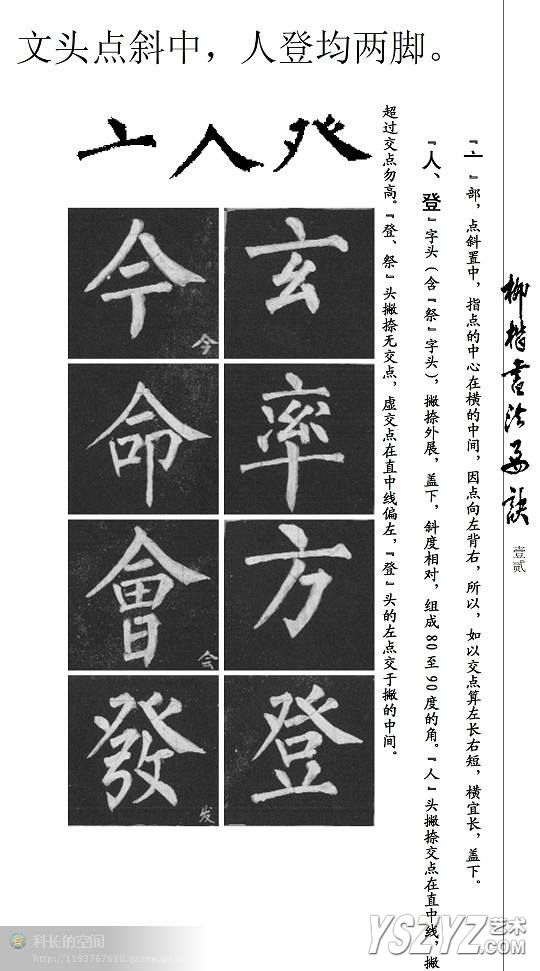 文头点斜中，人登均两脚。
亠人癶
『亠』部，点斜置中，指点的中心在横的中间，因点向左背右，所以，如以交点算左长右短，横宜长，盖下。
『人、登』字头（含『祭』字头），撇捺外展，盖下，斜度相对，组成80至90度的角。『人』头撇捺交点在直中线，撇
超过交点勿高。『登、祭』头撇捺无交点，虚交点在直中线偏左，『登』头的左点交于撇的中间。
玄
率
方
登
今
今
命
會
会
發
发
柳楷书法要诀
壹贰
科长的空间
YSZYZ艺术